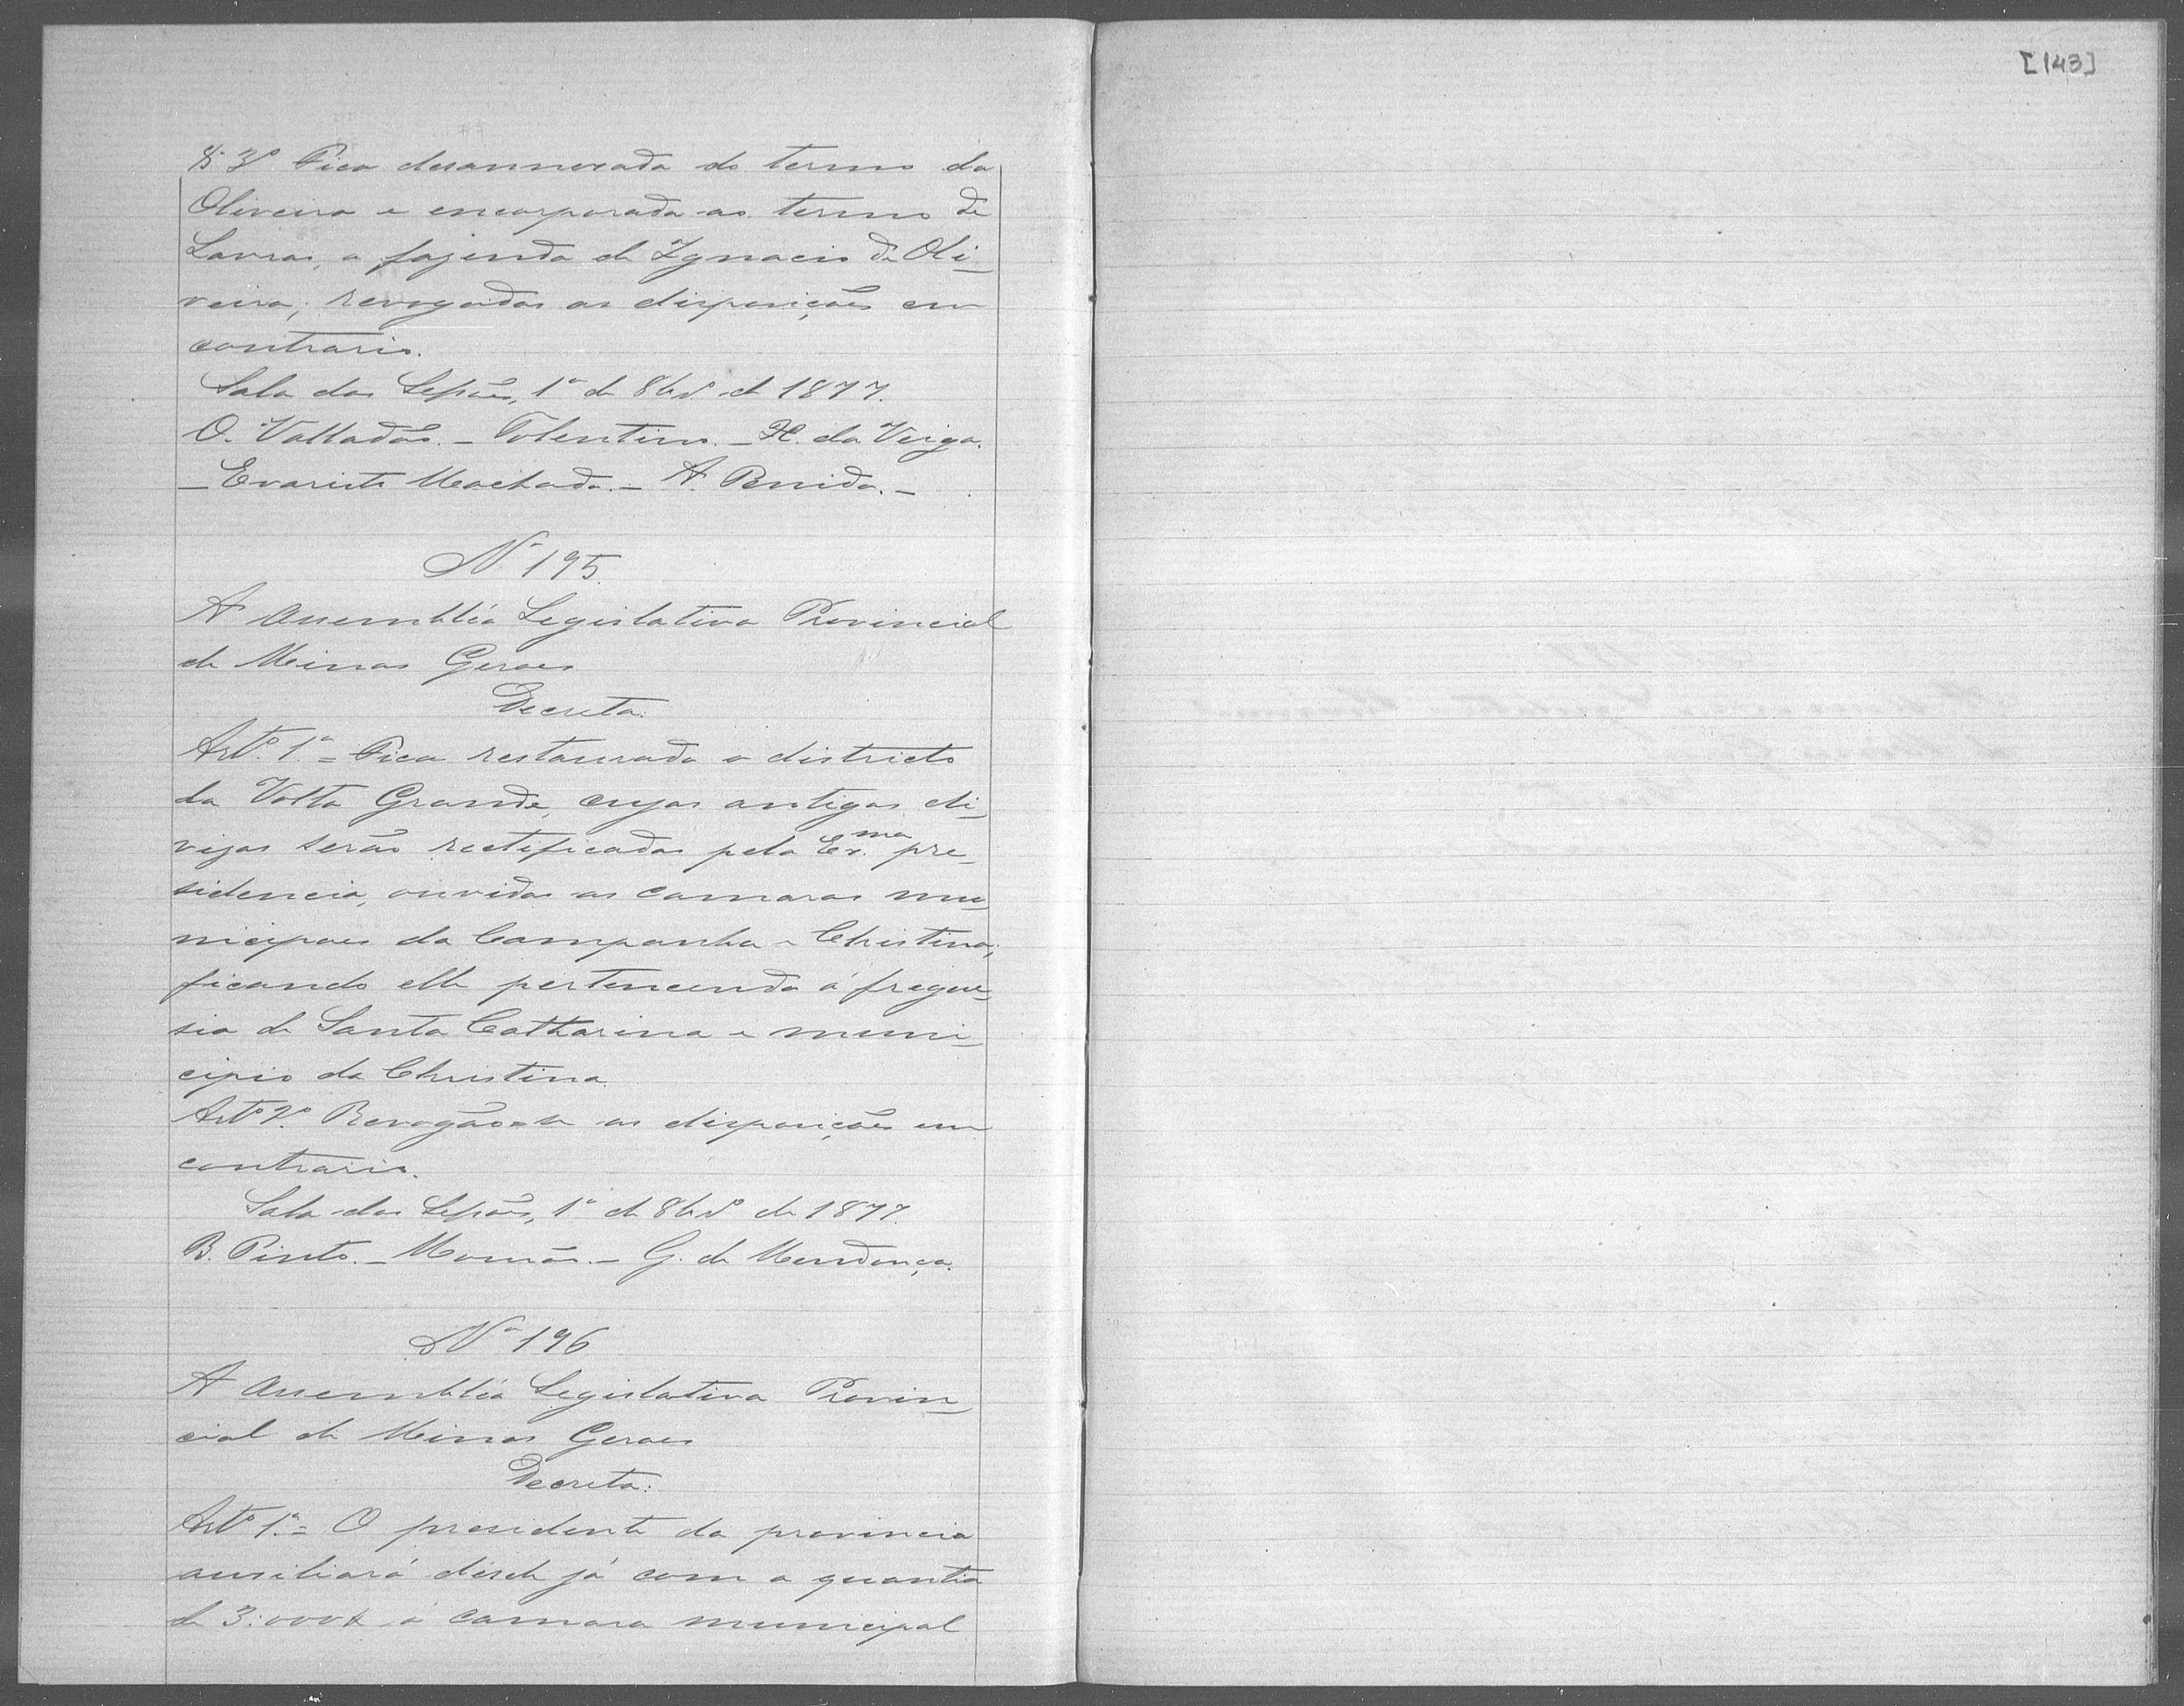 § 3º Fica desannexada do termo da
Oliveira e encorporada ao termo de
Lavras, a fazenda de Ignacio de Oli-
veira; revogadas as disposições em
contrario.
Sala das Sessões, 1º de 8brº de 1877.
O. Valladão. - Tolentino. - H. da Veiga.
- Evaristo Machado. - A. Penido. -
Nº 195.
A Assembléa Legislativa Provincial
de Minas Geraes
Decreta:
Artº. 1º = Fica restaurado o districto
da Volta Grande, cujas antigas di-
vizas serão rectificadas pela Ex.ma pre-
sidencia, ouvidas as camaras mu-
nicipaes da Campanha e Christina;
ficando elle pertencendo á fregue-
sia de Santa Catharina e muni-
cipio da Christina.
Artº 2º. Revogão-se as disposições em
contrario.
Sala das Sessões, 1º de 8brº de 1877.
B. Pinto. - - G. de Mendonça.
Nº 196
A Assembléa Legislativa Provin-
cial de Minas Geraes
Decreta:
Artº 1º = O presidente da provincia
auxiliará désde já com a quantia
de 3:000$ á camara municipal
[143]